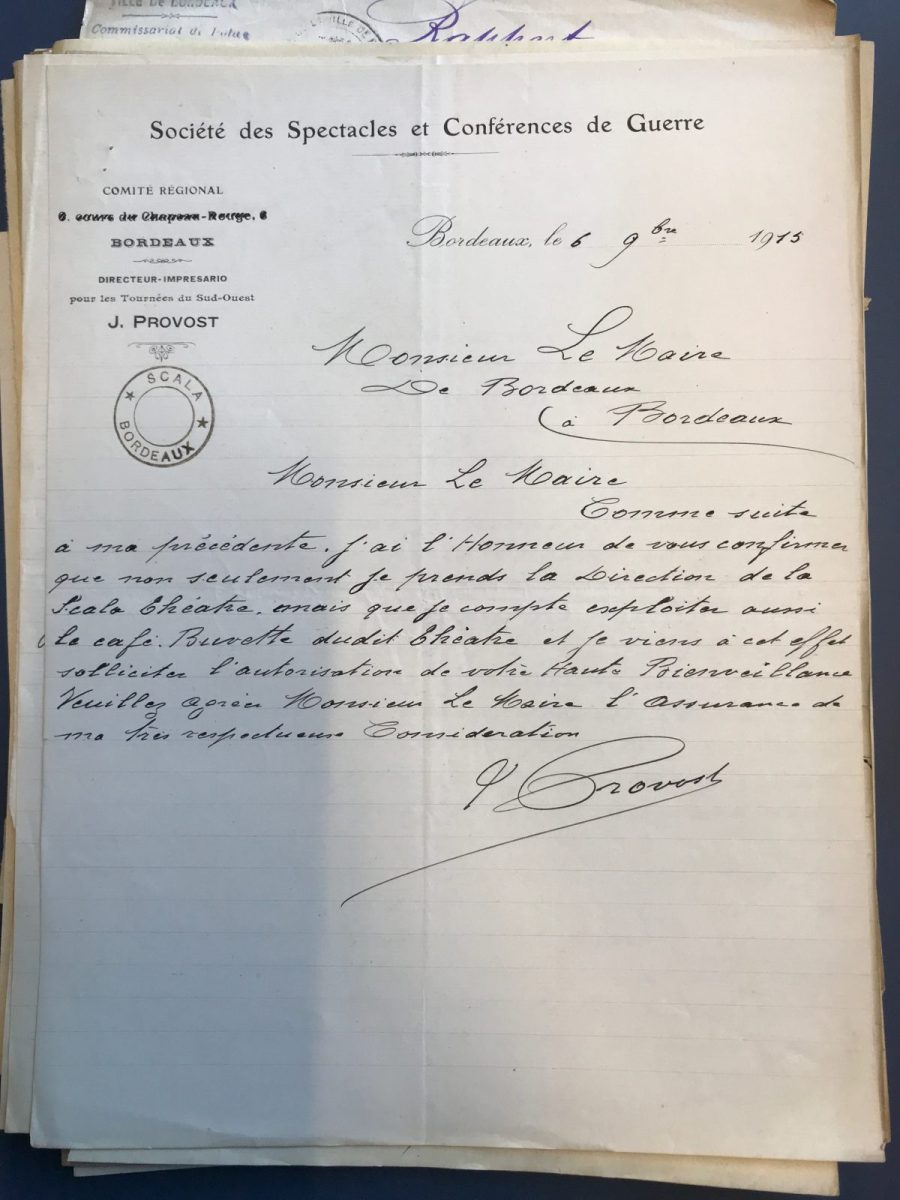 VILLE DE BORDEAUX
Commissariat de Police
Rapport
Société des Spectacles et Conférences de Guerre
COMITÉ RÉGIONAL
6. cours du Chapeau-Rouge, 6
BORDEAUX
DIRECTEUR-IMPRESARIO
pour les Tournées du Sud-Ouest
J. PROVOST
SCALA
BORDEAUX
Bordeaux, le 6 9bre 1915
Monsieur Le Maire
De Bordeaux
à Bordeaux
Monsieur Le Maire
Comme suite
à ma précédente. j'ai l'Honneur de vous confirmer
que non seulement je prends la Direction de la
Scala Théatre. mais que je compte exploiter aussi
le café. Buvette dudit Théatre et je viens à cet effet
solliciter l'autorisation de votre Haute Bienveillance
Veuillez agréer Monsieur Le Maire l'assurance de
ma très respectueuse Consideration
J Provost